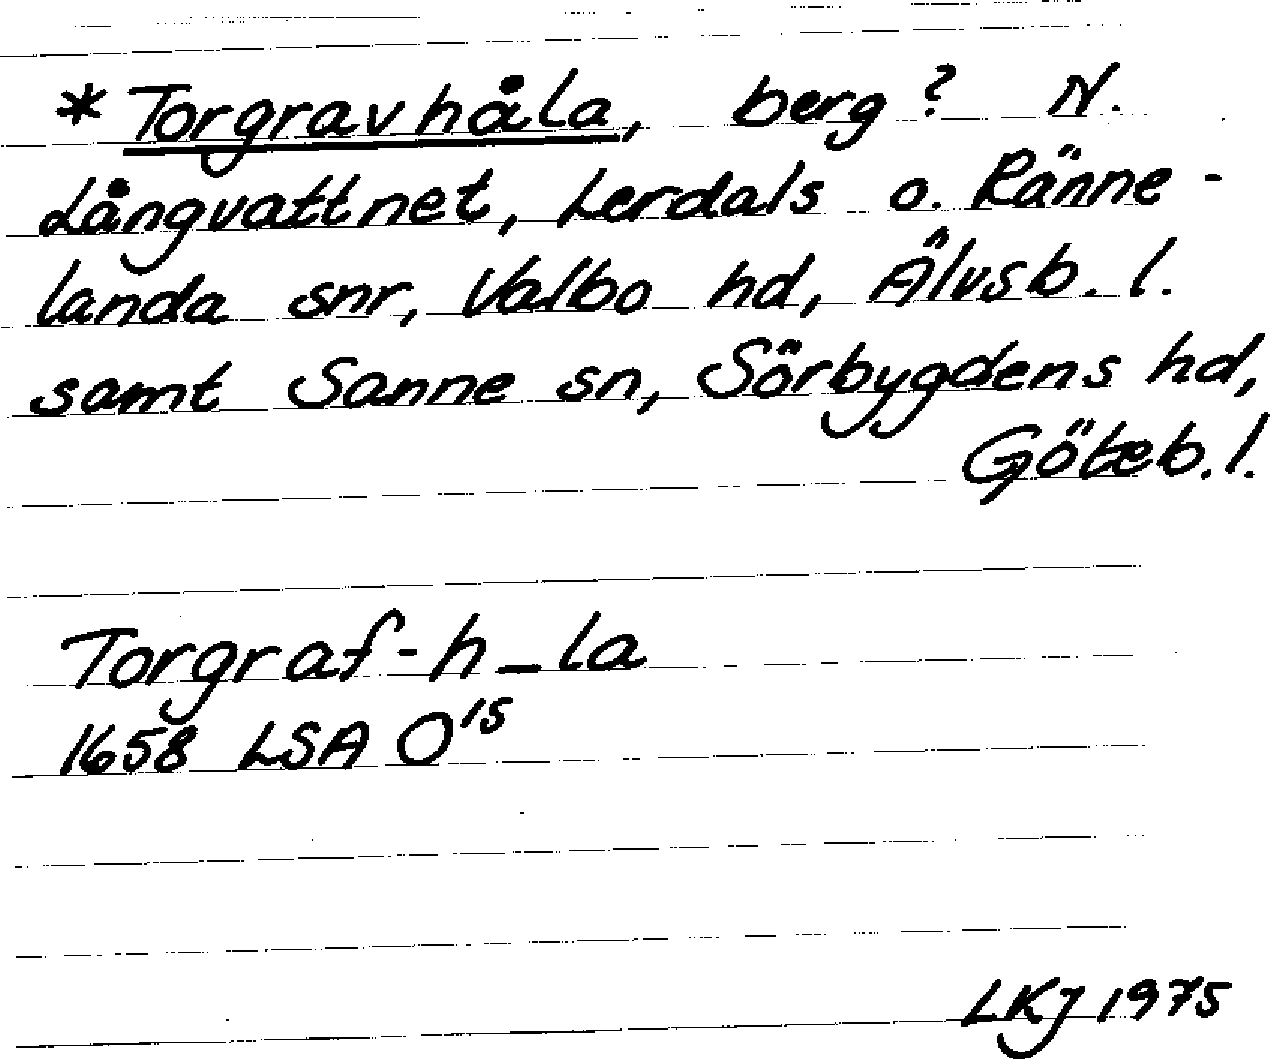 * Torgravhåla, berg? N.
Långvattnet, Lerdals o. Ränne-
landa snr, Valbo hd, Älvsb. l.
samt Sanne sn, Sörbygdens hd,
Göteb. l.
Torgraf-h_la
1658 LSA O15
LKJ 1975